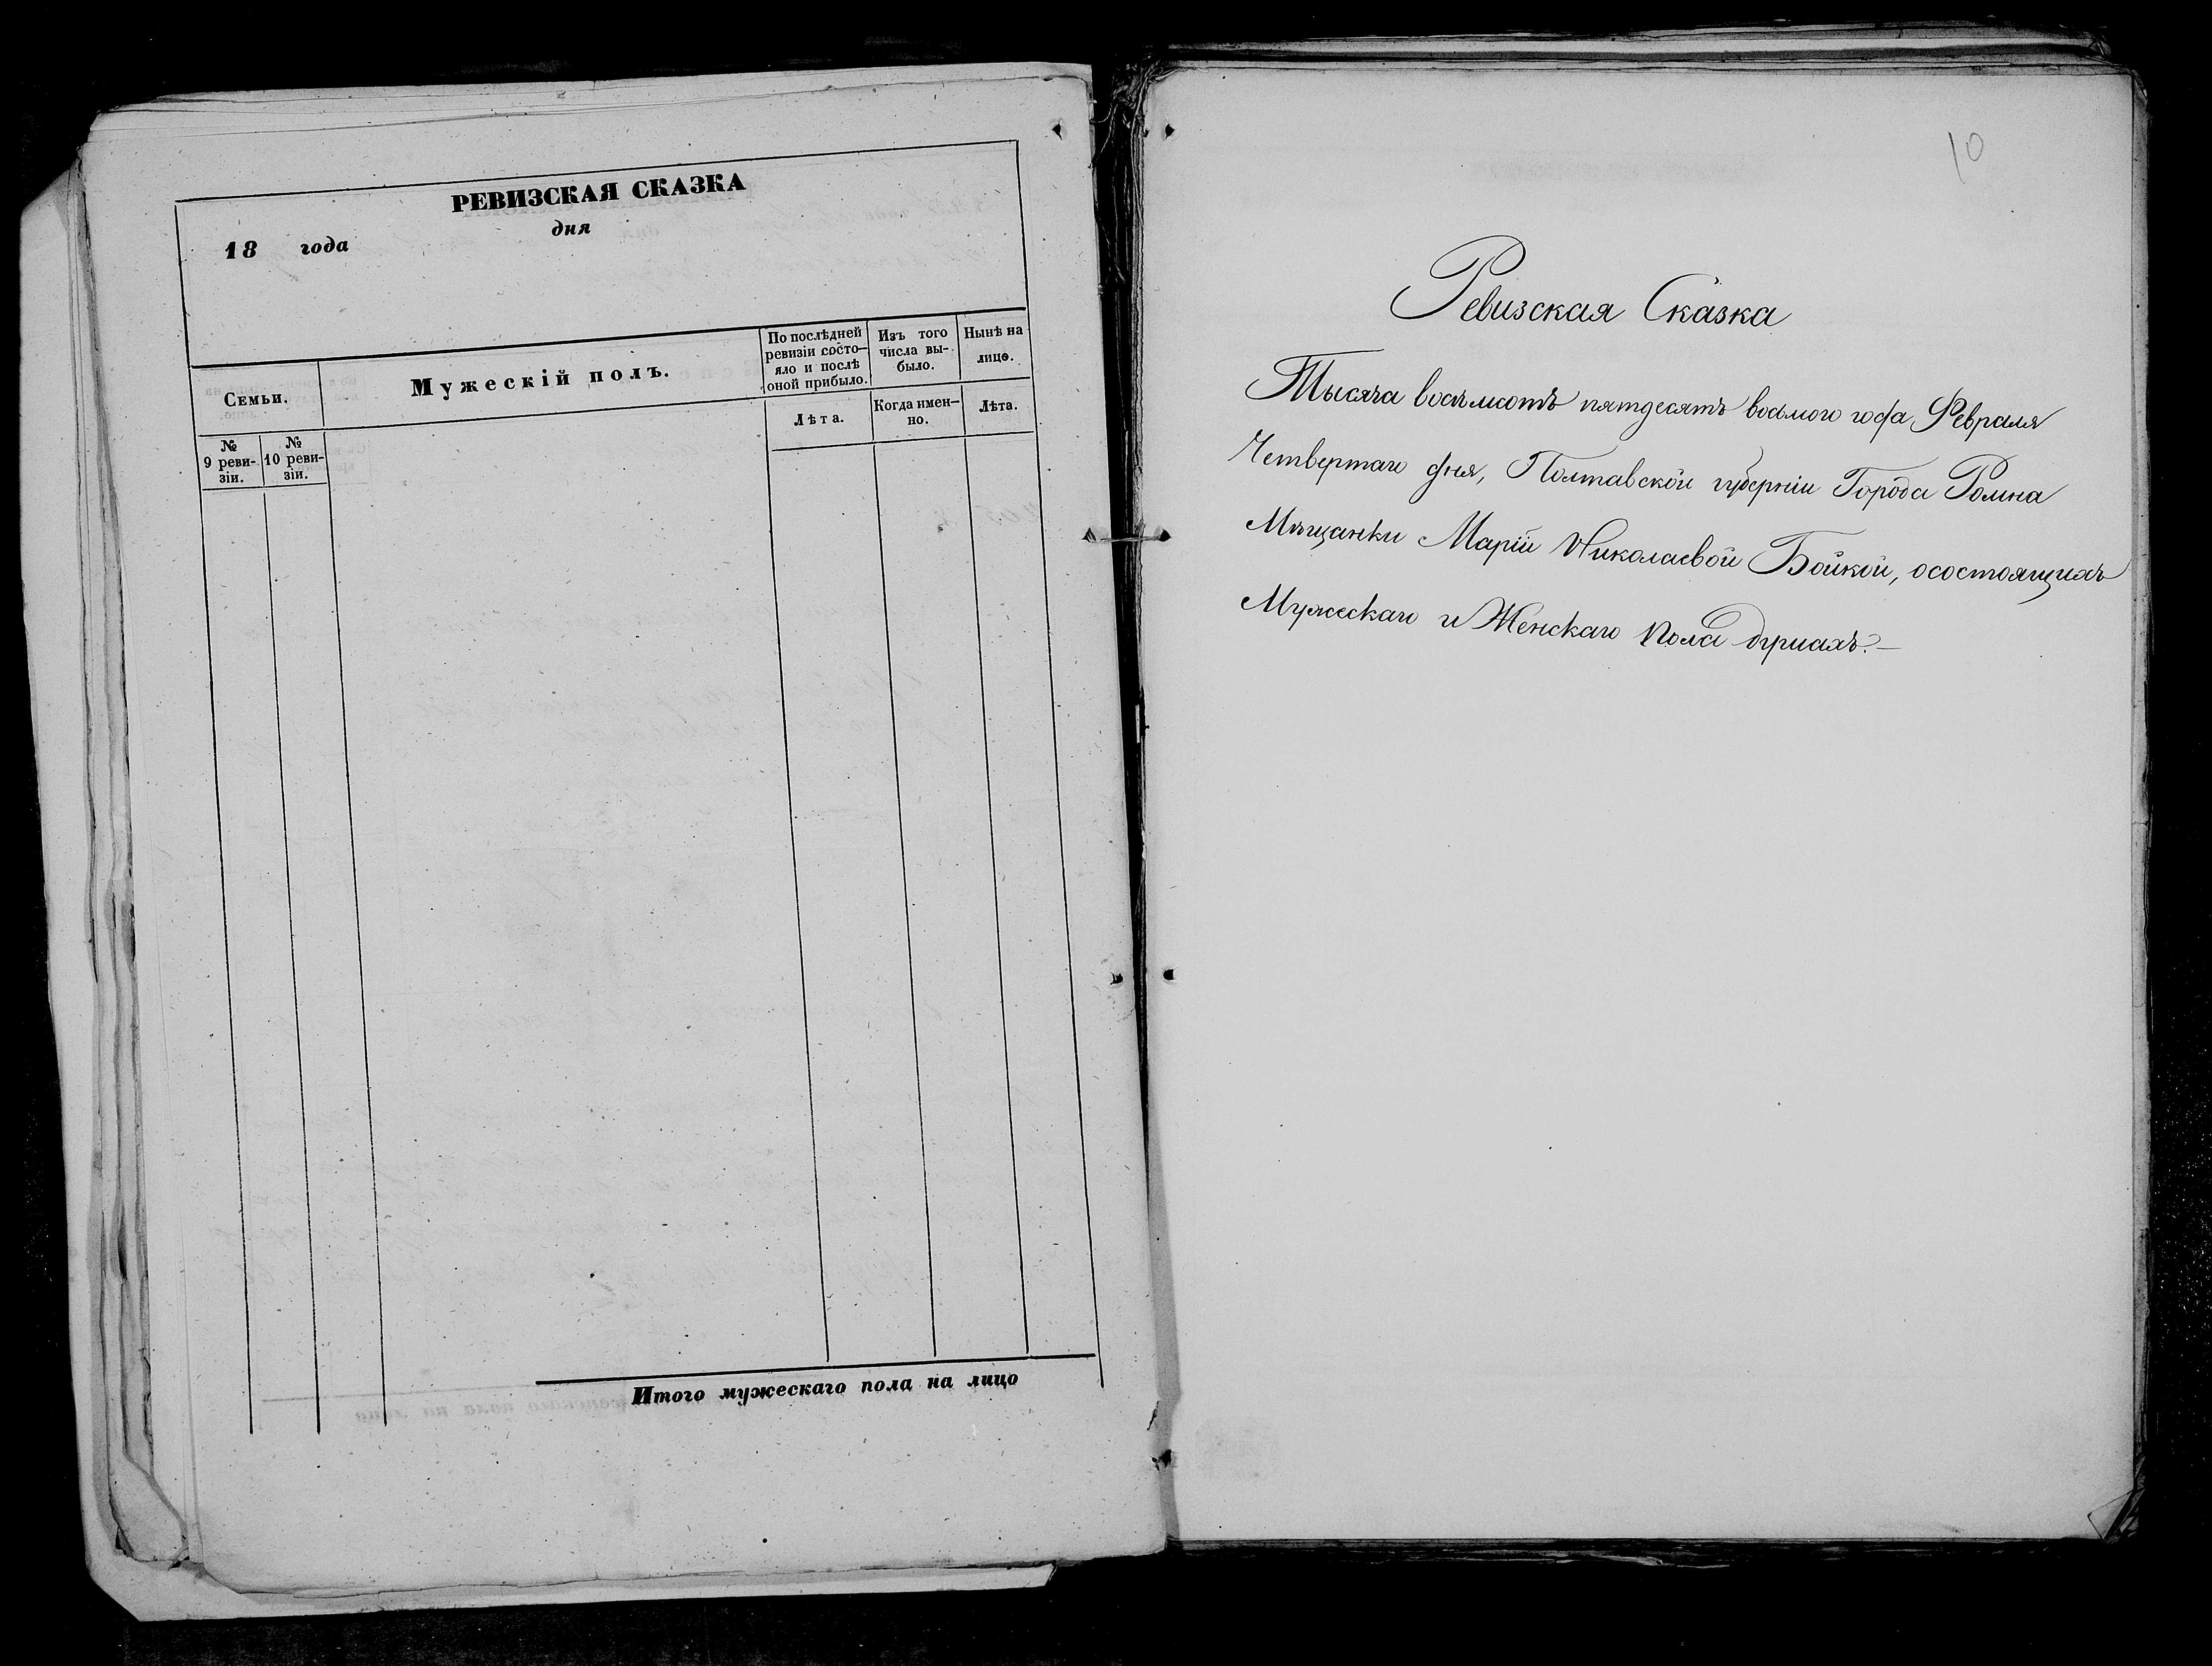 РЕВИЗСКАЯ СКАЗКА
18 года дня
Семьи.
Мужескій полъ.
По послѣдней
ревизіи состо-
яло и послѣ
оной прибыло.
Изъ того
числа вы-
было.
Нынѣ на
лицо.
Лѣта.
Когда имен-
но.
Лѣта.
№
9 реви-
зіи.
№
10 реви-
зіи.
Итого мужескаго пола на лицо
10
Ревизская Сказка
Тысяча восѣмсотъ пятдесятъ восьмого года Февраля
Четвертаго дня, Полтавской губерніи Города Ромна
Мѣщанки Маріи Николаевой Бойкой, осостоящихъ
Мужескаго и Женскаго Пола душахъ.—